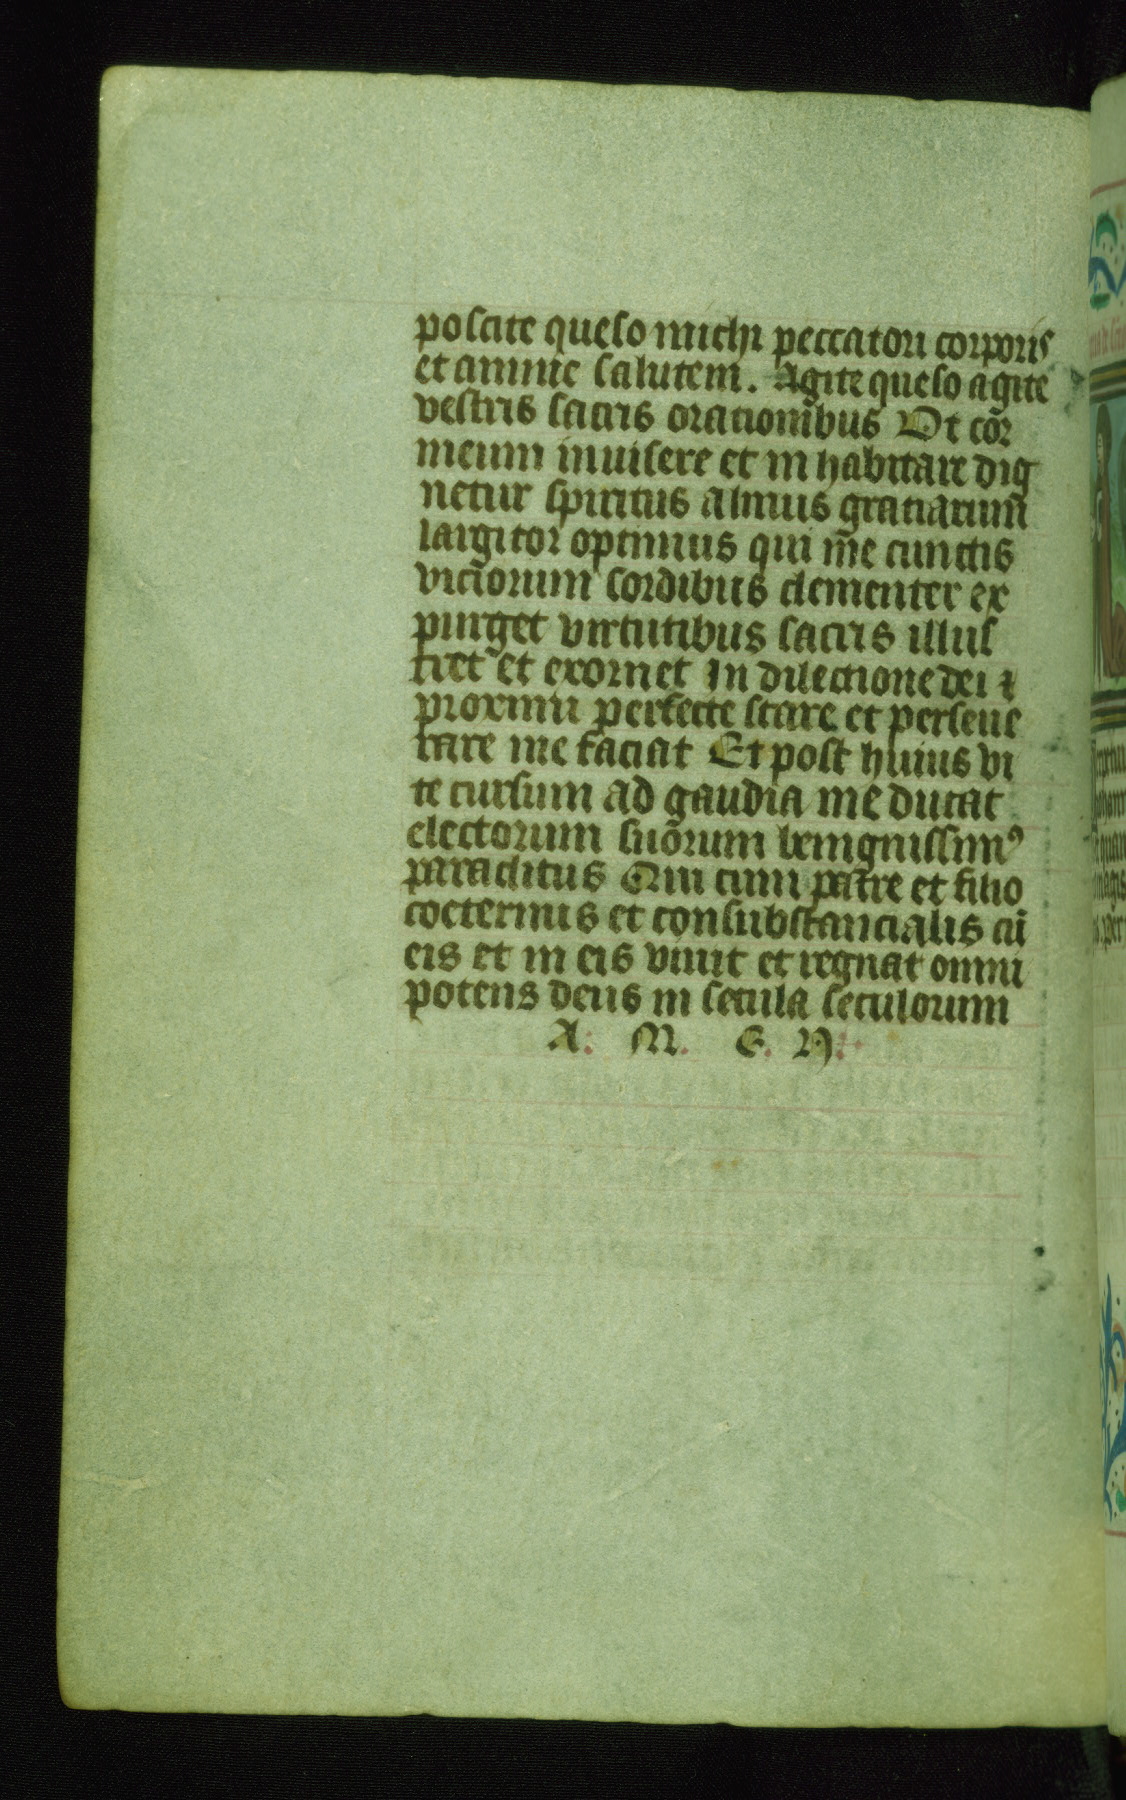 poscite queso michi peccatori corporis
et anime salutem. Agite queso agite
vestris sacris orationibus Ut cor
meum inuisere et in habitare dig
netur spiritus almus gratiarum
largitor optimus qui me cunctis
viciorum sordibus clementer ex
purget virtutibus sacris illus
tret et exornet In dilectione dei ⁊
proximi perfecte stare et perseue
rare me faciat Et post huius vi
te cursum ad gaudia me ducat
electorum suorum benignissimꝰ
paraclitus Qui cum patre et filio
coeternus et consubstancialis cū
eis et in eis viuit et regnat omni
potens deus in secula seculorum
A: M. E. N: